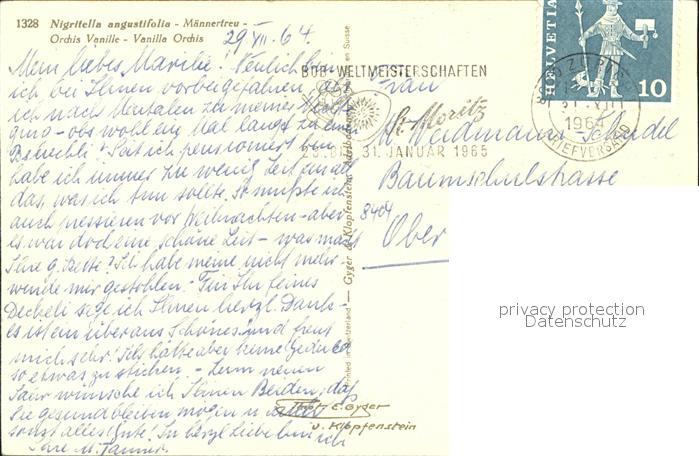 1328 Nigritella angustifolia - Männertreu -
Orchis Vanille - Vanilla Orchis
29 XII. 64
Mein liebes Marilie! Neulich bin
ich bei Ihnen vorbeigefahren, als
ich nach zu meines
- obs wohl ein Mal langt zu einem
Bsüechli? Seit ich pensioniert bin,
habe ich immer zu wenig Zeit für all
das, was ich tun sollte, so musste ich
auch pressieren vor Weihnachten - aber
es war doch eine schöne Zeit - was macht
Ihre g. ? Ich habe meine nicht mehr
wurde mir gestohlen. - Für Ihr feines
Decheli sage ich Ihnen herzl. Dank -
es ist ein überaus Schönes und freut
mich sehr. Ich hätte aber keine Geduld
so etwas zu sticken. - Zum neuen
Jahr wünsche ich Ihnen Beiden, dass
Sie gesund bleiben mögen u.
sonst alles Gute! In herzl. Liebe bin ich
Ihre M. Tanner.
BOB-WELTMEISTERSCHAFTEN
St. Moritz
31. JANUAR 1965
HELVETIA
10
ZÜRICH
31. XII
1964
BRIEFVERSAND
Frau
Weidmann-Schudel
Baumschulstrasse
8404
Ober
Gyger & Klopfenstein, Adelboden
Printed in Switzerland
en Suisse
Phot. E. Gyger
u. Klopfenstein
privacy protection
Datenschutz